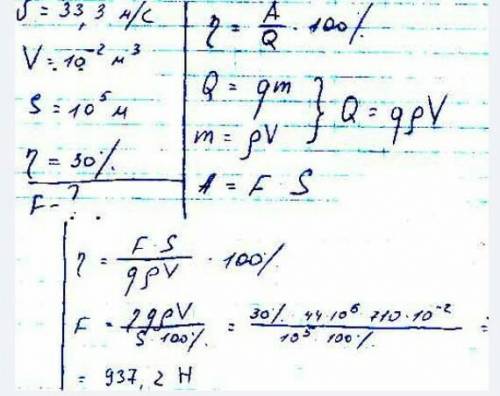 υ = 33,3 м/с
V = 10⁻² м³
S = 10⁵ м
η = 30%
F - ?
η = A/Q · 100%
Q = qm
m = ρV
} Q = qρV
A = F · S
η = F·S / qρV · 100%
F = ηqρV / S 100% = 30% · 44·10⁶ · 710·10⁻² / 10⁵ · 100% =
= 937,2 Н